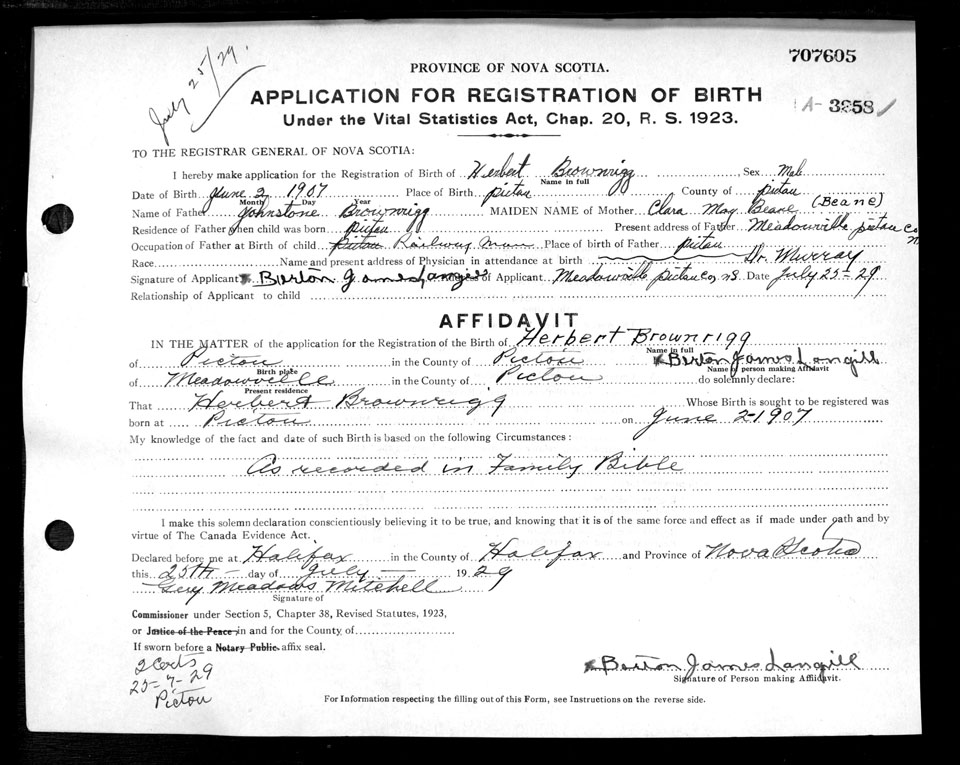 July 25/29.
707605
PROVINCE OF NOVA SCOTIA.
APPLICATION FOR REGISTRATION OF BIRTH
A- 3258
Under the Vital Statistics Act, Chap. 20, R. S. 1923.
TO THE REGISTRAR GENERAL OF NOVA SCOTIA:
I hereby make application for the Registration of Birth of Herbert Brownrigg Sex Male
Name in full
Date of Birth June 2 1907 Place of Birth Pictou County of Pictou
Month Day Year
Name of Father Johnstone Brownrigg MAIDEN NAME of Mother Clara May Beane (Beane)
Residence of Father when child was born Pictou Present address of Father Meadowville Pictou Co
Occupation of Father at Birth of child Pictou Railway Man Place of birth of Father Pictou
Race Name and present address of Physician in attendance at birth Dr. Murray
Signature of Applicant Burton James Langill Address of Applicant Meadowville Pictou Co, NS Date July 25-29
Relationship of Applicant to child
AFFIDAVIT
IN THE MATTER of the application for the Registration of the Birth of Herbert Brownrigg
Name in full
of Pictou in the County of Pictou Berton James Langill
Birth place Name of person making Affidavit
of Meadowville in the County of Pictou do solemnly declare:
Present residence
That Herbert Brownrigg Whose Birth is sought to be registered was
born at Pictou on June 2-1907
My knowledge of the fact and date of such Birth is based on the following Circumstances:
As recorded in Family Bible
I make this solemn declaration conscientiously believing it to be true, and knowing that it is of the same force and effect as if made under oath and by
virtue of The Canada Evidence Act.
Declared before me at Halifax in the County of Halifax and Province of Nova Scotia
this 25th day of July 1929
Meadows Mitchell
Signature of
Commissioner under Section 5, Chapter 38, Revised Statutes, 1923,
or Justice of the Peace in and for the County of
If sworn before a Notary Public affix seal.
2 Certs
25-7-29
Pictou
Berton James Langill
Signature of Person making Affidavit.
For Information respecting the filling out of this Form, see Instructions on the reverse side.